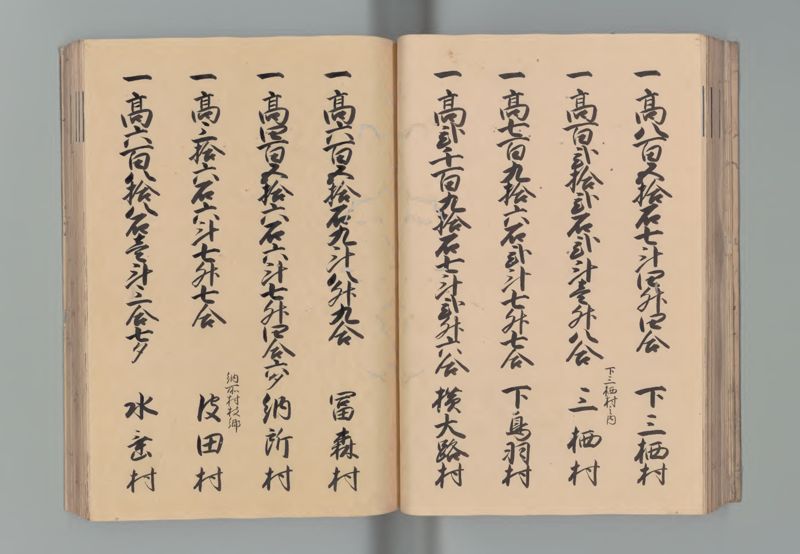 一高八百五拾石七斗四升四合 下三栖村
一高百弐拾弐石弐斗壱升八合 下三栖村之内 三栖村
一高七百九拾六石弐斗七升七合 下鳥羽村
一高弐千百九拾石七斗弐升六合 横大路村
一高六百五拾石九斗八升九合 富森村
一高四百五拾六石六斗七升四合六夕 納所村
一高三拾六石六斗七升七合 納所村枝郷 波田村
一高六百八拾八石壱斗二合七夕 水垂村